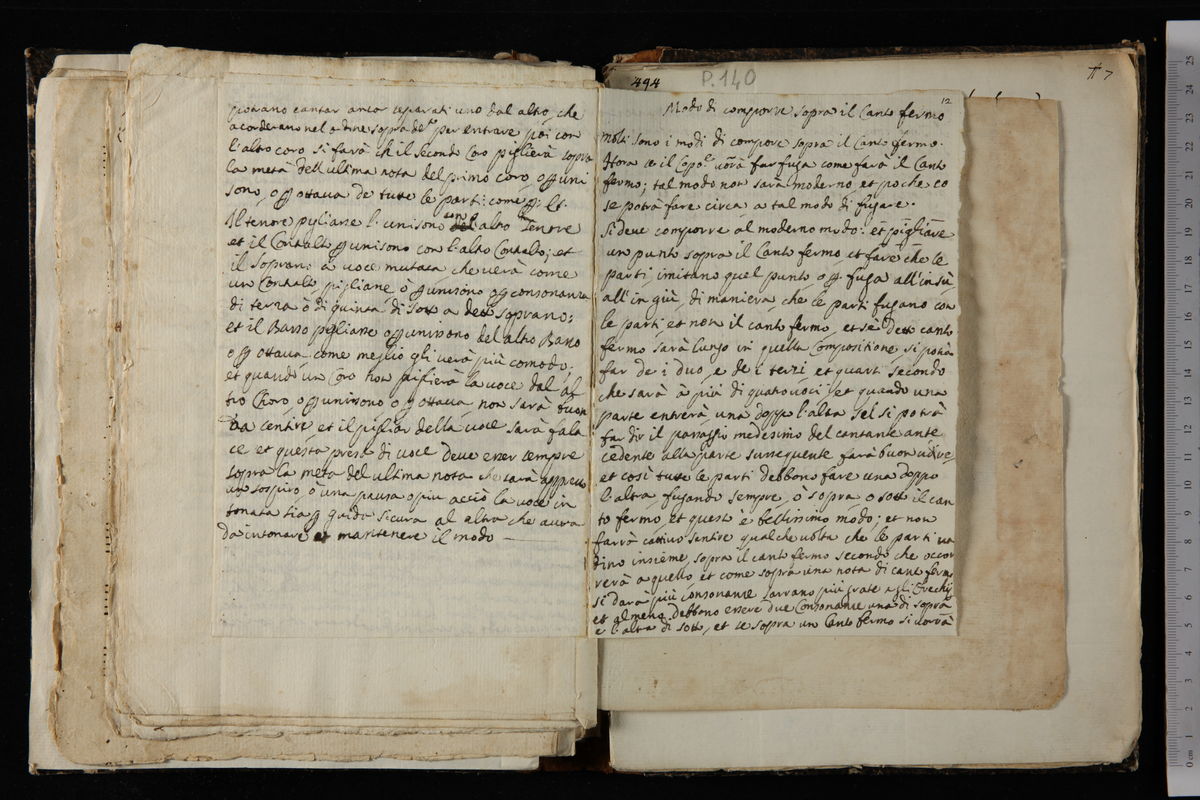 potrano cantar ancor separati uno dal altro, che
acorderano nel ordine sopra de.to per entrare poi con
l'altro coro si farà ch il secondo Coro piglierà sopra
la metà dell ultima nota del primo coro o uni
sono, o ottava de tutte le parti: come
Il tenore pigliare l'unisono con l'altro Tenore
et il Contralto unisono con l'altro Contralto; et
il soprano à voce mutata che verà come
un Contralto, pigliare ò unisono o consonanza
di terza ò di quinta di sotto a detto soprano;
et il Basso pigliare o unisono del altro Basso
o ottava come meglio gli verà più comodo;
et quando un Coro non piglierà la voce dal al
tro Choro o unisono o ottava non sarà buon
da sentire, et il pigliar della voce sarà fala
ce et questa presa di voce deve esser sempre
sopra la meta del ultima nota che sarà appresso
un sospiro, ò una pausa o piu acciò la voce in
tonata sia guida sicura al altro che avera
da intonare et mantenere il modo
494
P. 140
7
12
Modo di comporre sopra il Canto fermo
Molti sono i modi di comporre sopra il Canto fermo.
Hora se il vorà far fuga come farà il Canto
fermo; tal modo non sarà moderno et poche co
se potrà fare circa a tal modo di fugare.
Si deve comporre al moderno modo: et pigliare
un punto sopra il Canto fermo et fare che le
parti imitano quel punto o fuga all'in sù
all'in giù, di maniera che le parti fugano con
le parti et non il canto fermo, et sè detto canto
fermo sarà lungo in quella Compositione si potrà
far de i duo, e de i terzi et quarti secondo
che sarà à più di quatro voci et quando una
parte entrerà una doppo l'altra sel si potrà
far dir il passaggio medesimo del cantante ante
cedente alla parte susseguente farà buon udire,
et così tutte le parti debbono fare una doppo
l'altra fugando sempre, ò sopra o sotto il can
to fermo et questo è bellissimo modo; et non
farrà cattivo sentire qualche volta che le parti va
dino insieme, sopra il canto fermo secondo che occor
rerà a quello et come sopra una nota di canto fermo
si darà più consonanze saranno più grate agli Orecchij
et almeno debbono essere due Consonanze una di sopra
e l'altra di sotto, et se sopra un Canto fermo si vorrà